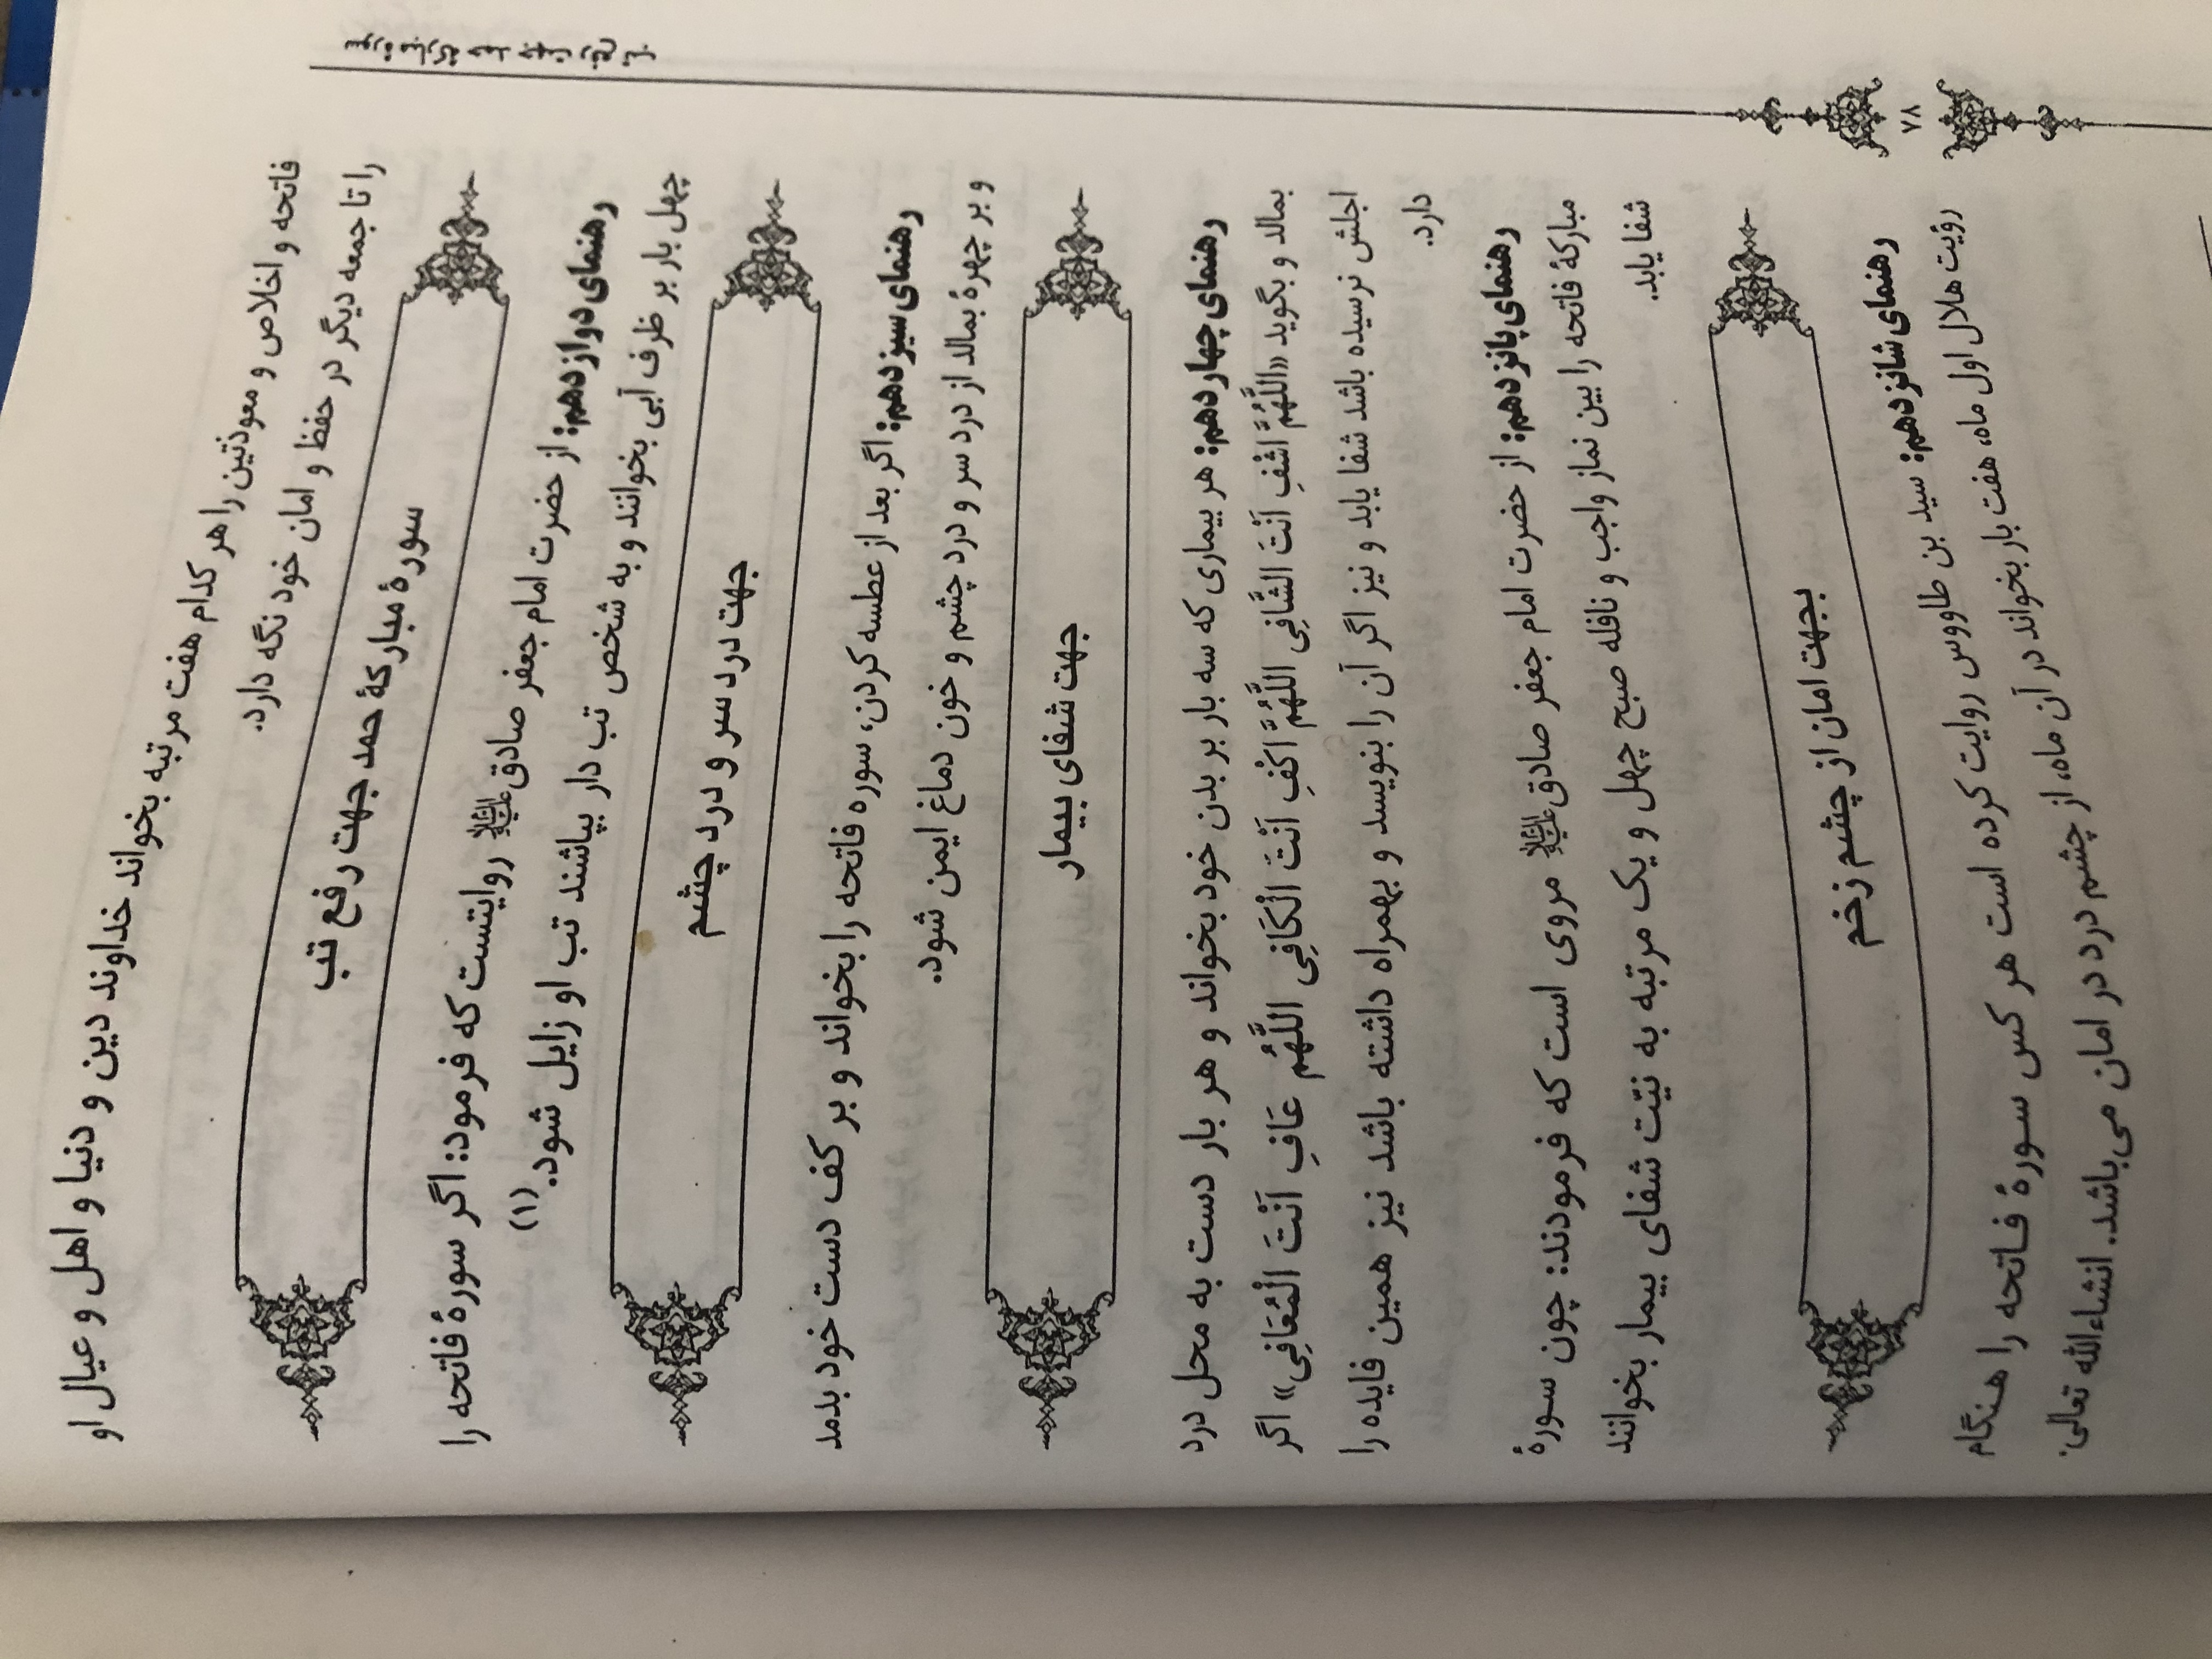 فاتحه و اخلاص و معوذتین را هر کدام هفت مرتبه بخواند خداوند دین و دنیا و اهل و عیال او
را تا جمعه دیگر در حفظ و امان خود نگه دارد.
سورهٔ مبارکهٔ حمد جهت رفع تب
رهنمای دوازدهم: از حضرت امام جعفر صادق علیه‌السلام روایتست که فرمود: اگر سورهٔ فاتحه را
چهل بار بر ظرف آبی بخوانند و به شخص تب دار بپاشند تب او زایل شود.(۱)
جهت درد سر و درد چشم
رهنمای سیزدهم: اگر بعد از عطسه کردن، سوره فاتحه را بخواند و بر کف دست خود بدمد
و بر چهرهٔ بمالد از درد سر و درد چشم و خون دماغ ایمن شود.
جهت شفای بیمار
رهنمای چهاردهم: هر بیماری که سه بار بر بدن خود بخواند و هر بار دست به محل درد
بمالد و بگوید «اللَّهُمَّ اشْفِ اَنْتَ الشَّافِی اللَّهُمَّ اکْفِ اَنْتَ الْکَافِی اللَّهُم عَافِ اَنْتَ الْمُعَافِی» اگر
اجلش نرسیده باشد شفا یابد و نیز اگر آن را بنویسد و بهمراه داشته باشد نیز همین فایده را
دارد.
رهنمای پانزدهم: از حضرت امام جعفر صادق علیه‌السلام مروی است که فرمودند: چون سورهٔ
مبارکهٔ فاتحه را بین نماز واجب و نافله صبح چهل و یک مرتبه به نیّت شفای بیمار بخوانند
شفا یابد.
بجهت امان از چشم زخم
رهنمای شانزدهم: سید بن طاووس روایت کرده است هر کس سورهٔ فاتحه را هنگام
رؤیت هلال اول ماه، هفت بار بخواند در آن ماه، از چشم درد در امان می‌باشد. انشاءالله تعالی.
۷۸